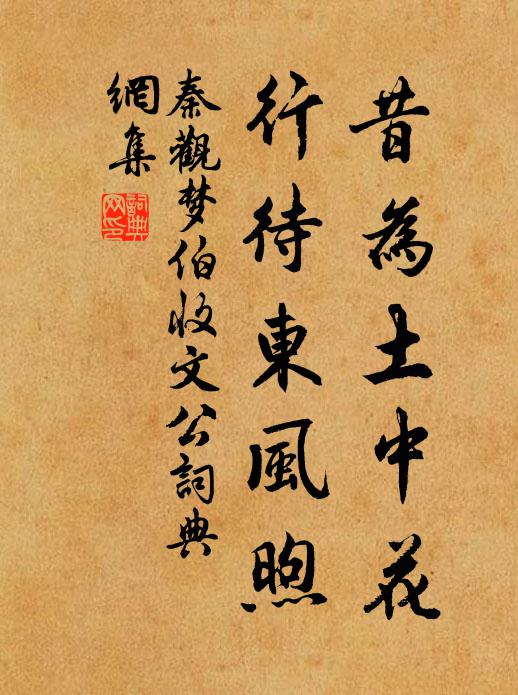 昔為土中花
行待東風煦
秦觀梦伯收文公詞典
網集
詞典
网印